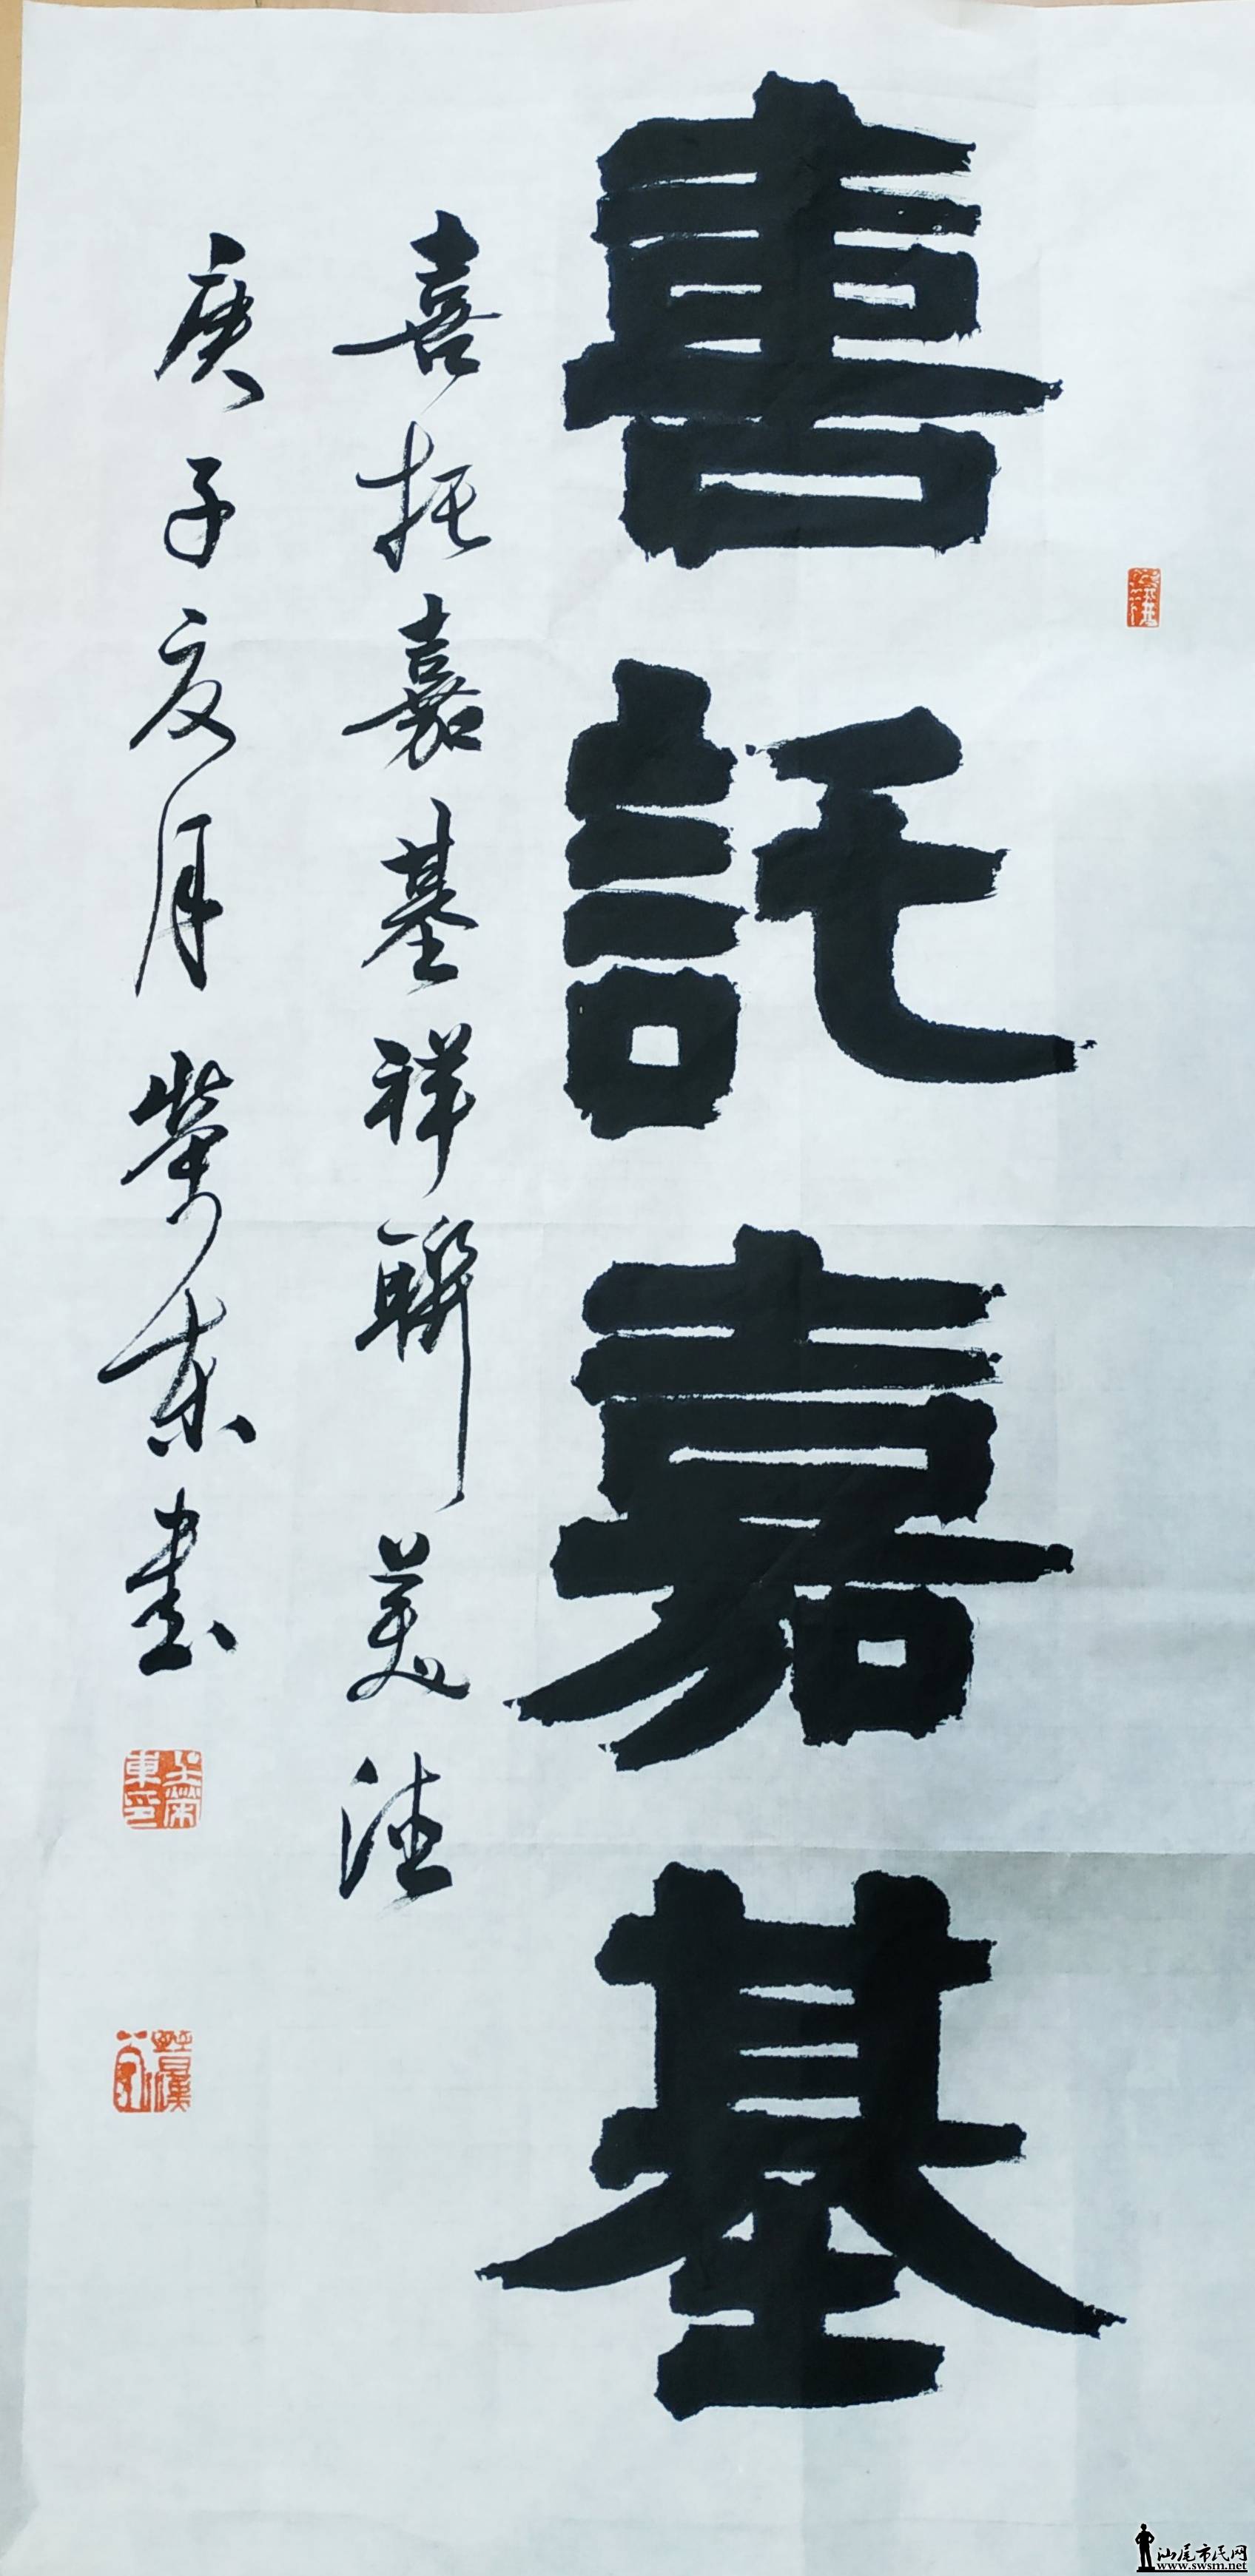 喜託嘉基
喜托嘉基祥联美滢
庚子夏月荣东书
荣東印
汕尾市民网
www.swsm.net